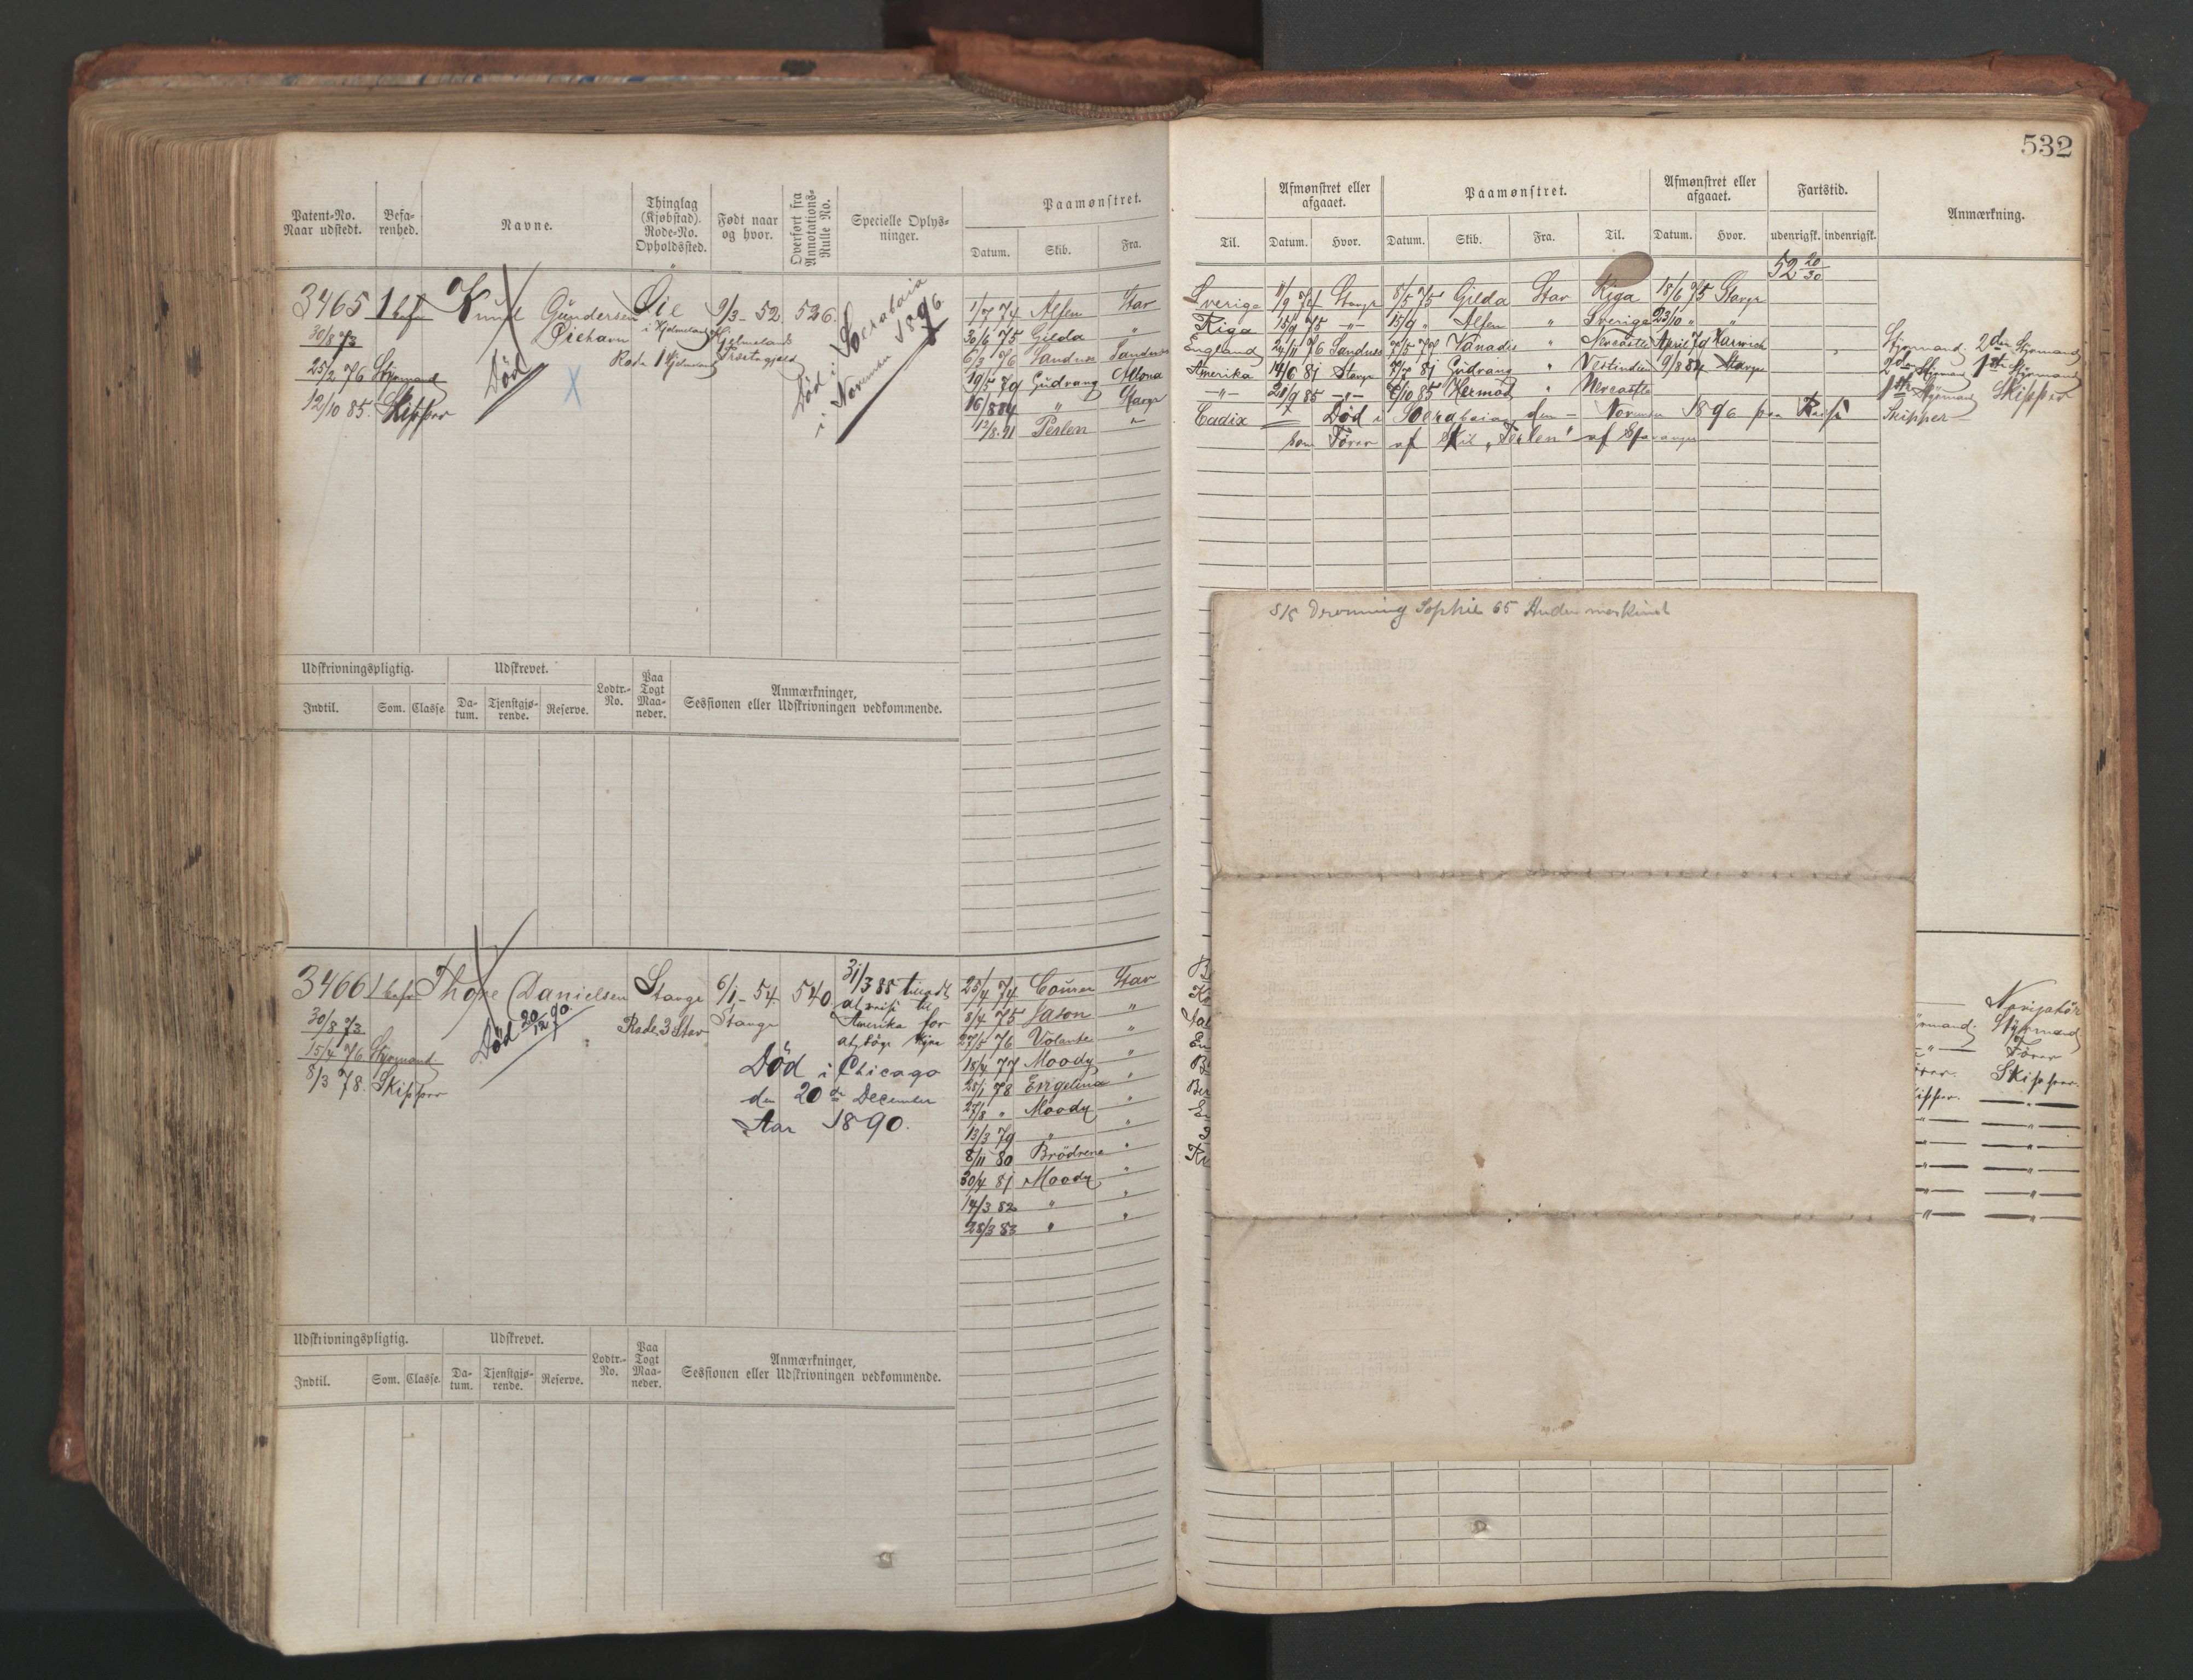 532
Patent-No. Naar udstedt.
Befa-renhed.
Navne.
Thinglag (Kjøbstad). Rode-No. Opholdssted.
Født naar og hvor.
Overført fra Annotations-Rulle No.
Specielle Oplys-ninger.
Paamønstret.
Datum. Skib. Fra.
Til.
Afmønstret eller afgaaet.
Datum. Hvor.
Paamønstret.
Datum. Skib. Fra. Til.
Afmønstret eller afgaaet.
Datum. Hvor.
Fartstid.
udenrigsk. indenrigsk.
Anmærkning.
52 20/30
3465 1 befa Knud Gundersen Øie 9/3- 52. 526.
30/8 73 Øiehavn i Hjelmeland Hjelmelands
Rode 1 Hjelmeland Præstegjeld
25/2 76 Styrmand
12/10 85. Skipper
Død
Død i Soerabaia
i November 1896
1/7 74 Alfen Stav
30/6 75 Gilda "
6/2 76 Sandnes Sandnes
19/5 80 Gudrang Altona
16/8 84 " Stavgr
12/8. 91 Perlen "
Sverige 11/9 74 Stavgr 8/5 75 Gilda Stav Riga 18/6 75 Stavgr
Riga 15/9 75 -"- 15/9 " Alfen " Sverige 23/10 " "
England 24/11 76 Sandnes Vanadis " Newcastle April 79 Harwich Styrmand. 2den Styrmand
Amerika 14/6 81 Stavgr 81 Gudrang " Vestindien 9/8 84 Stavgr 2den Styrmand 1ste Styrmand
-"- 21/9 85 -"- 8/10 85 Hermod " Newcastle 1ste Styrmand Skipper
Cadix Død i Soerabaia den - November 1896 paa Reise Skipper
som Fører af Skib "Perlen" af Stavanger
S/S Dronning Sophie 65 Anden maskinist
Udskrivningspligtig.
Indtil. Som. Classe.
Udskrevet.
Da-tum. Tjenstgjø-rende. Reserve.
Lodtr.-No.
Paa Togt Maa-neder.
Anmærkninger,
Sessionen eller Udskrivningen vedkommende.
3466 1 befa Thore Danielsen Stavgr 6/1- 54 540
30/8 73 Rode 3 Stav Stavgr
15/4 76 Styrmand
8/3 78. Skipper
Død 20/12 90.
31/3 85 tilladt
at reise til
Amerika for
at søge Hyre
Død i Chicago
den 20de December
Aar 1890.
25/4 74 Courier Stav
8/4 75 Jason "
27/5 76 Volante "
18/4 77 Moody "
25/1 78 Engelina "
27/8 " Moody "
13/3 79 " "
8/11 80 Brødrene "
30/4 81 Moody "
14/3 82 " "
28/3 83 " "
Styrmand
Fører
Skipper.
Udskrivningspligtig.
Indtil. Som. Classe.
Udskrevet.
Da-tum. Tjenstgjø-rende. Reserve.
Lodtr.-No.
Paa Togt Maa-neder.
Anmærkninger,
Sessionen eller Udskrivningen vedkommende.